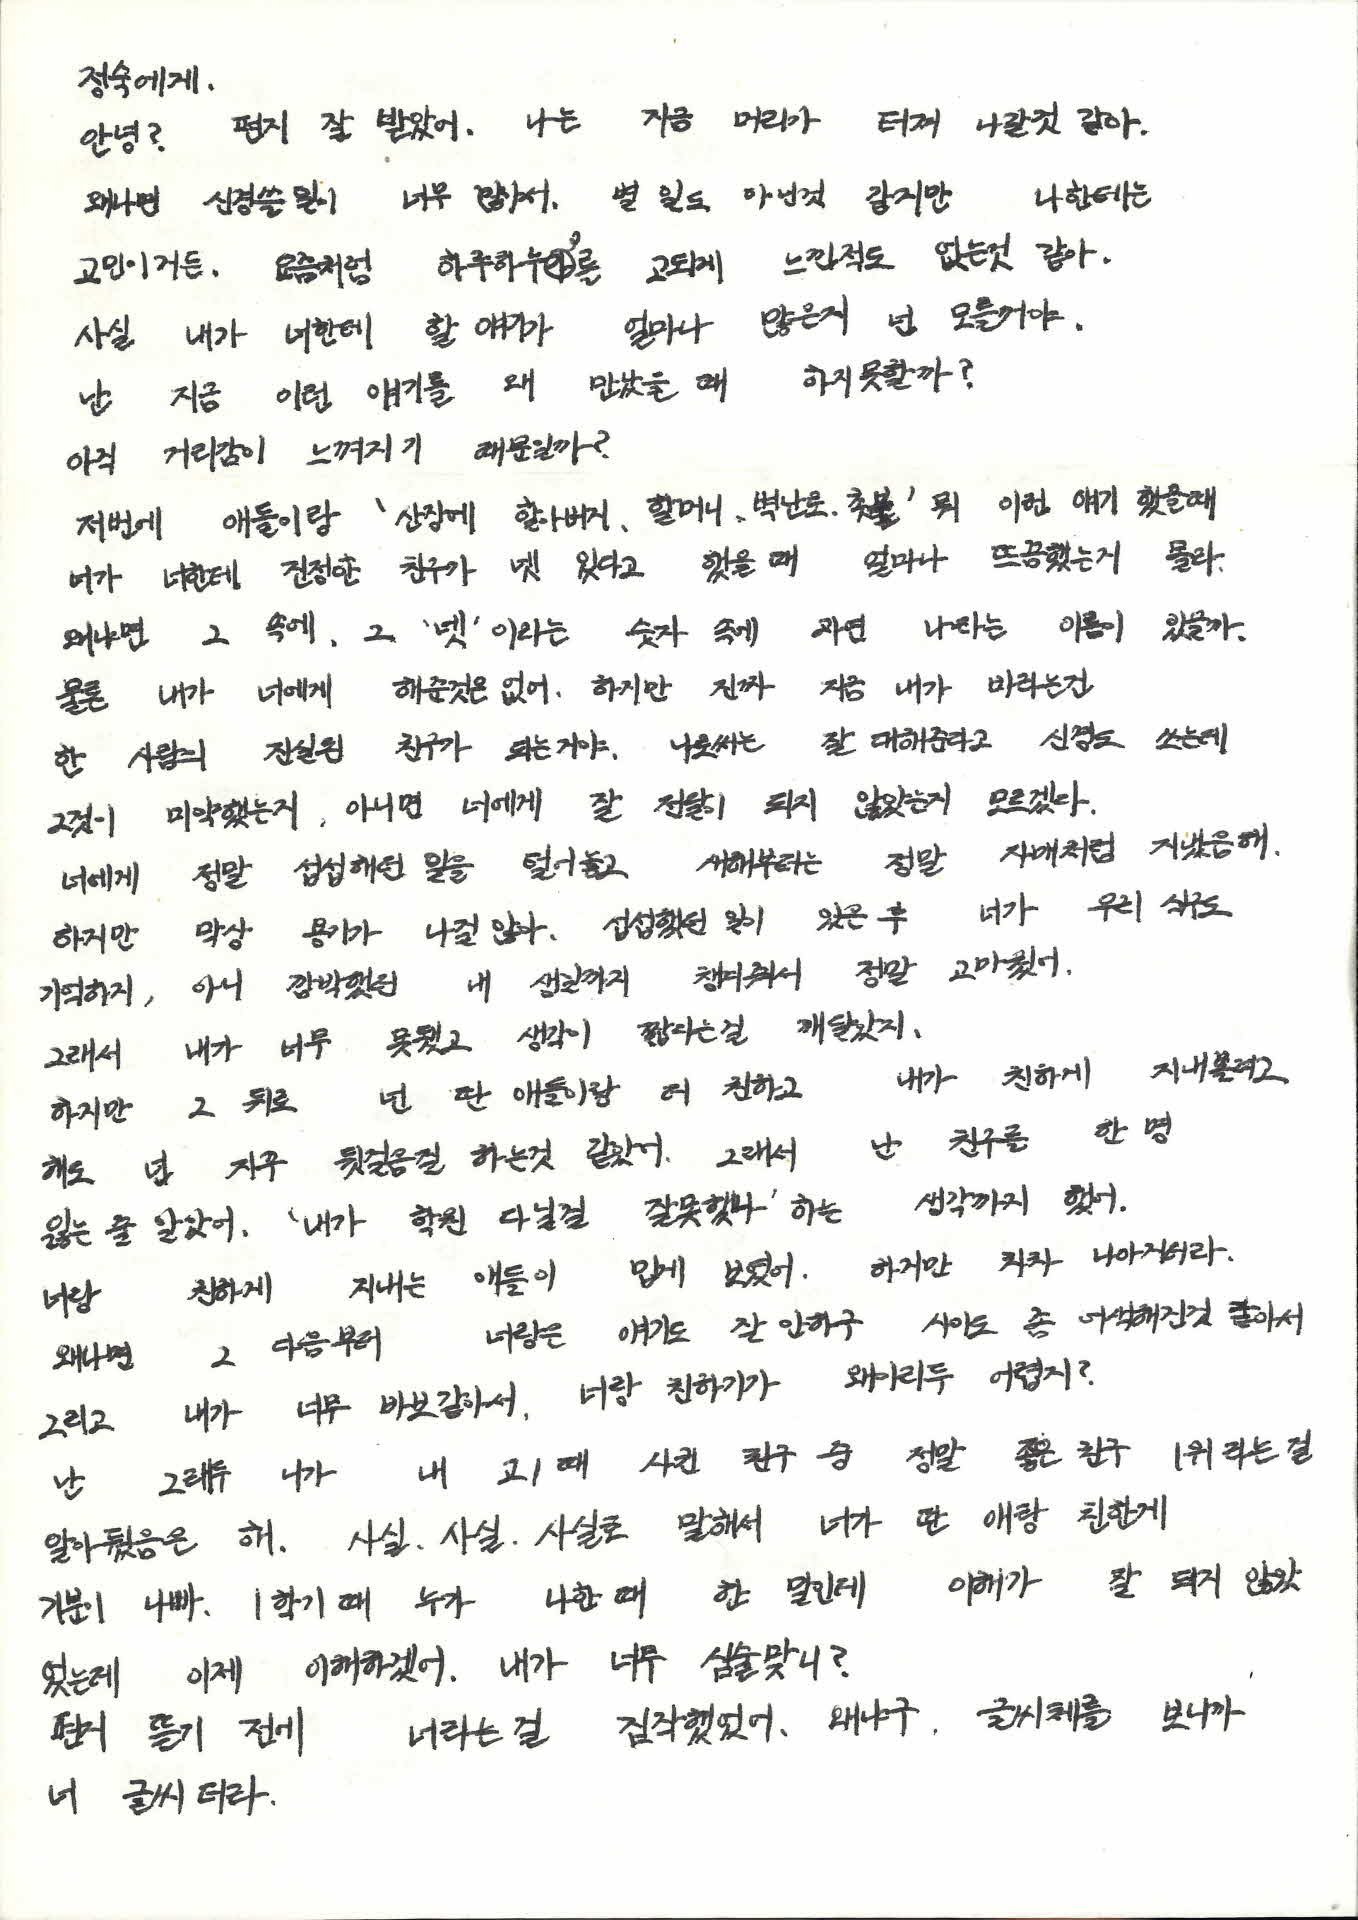 정숙에게.
안녕? 편지 잘 받았어. 나는 지금 머리가 터져 나갈것 같아.
왜냐면 신경쓸일이 너무 많아서. 별 일도 아닌것 같지만 나한테는
고민이거든. 요즘처럼 하루하루를 고되게 느낀적도 없는것 같아.
사실 내가 너한테 할 얘기가 얼마나 많은지 넌 모를거야.
난 지금 이런 얘기를 왜 만났을 때 하지못할까?
아직 거리감이 느껴지기 때문일까?
저번에 애들이랑 '산장에 할아버지, 할머니, 벽난로, 촛불' 뭐 이런 얘기 했을때
너가 너한테 진정한 친구가 넷 있다고 했을때 얼마나 뜨끔했는지 몰라.
왜냐면 그 속에, 그 '넷'이라는 숫자 속에 과연 나라는 이름이 있을까.
물론 내가 너에게 해준것은 없어. 하지만 진짜 지금 내가 바라는건
한 사람의 진실된 친구가 되는거야. 나로써는 잘 대해준다고 신경도 쓰는데
그것이 미약했는지, 아니면 너에게 잘 전달이 되지 않았는지 모르겠다.
너에게 정말 섭섭해던 일을 털어놓고 새해부터는 정말 자매처럼 지냈음해.
하지만 막상 용기가 나질 않아. 섭섭했던 일이 있은 후 너가 우리 식구도
기억하지, 아니 깜박했던 내 생일까지 챙겨줘서 정말 고마웠어.
그래서 내가 너무 못됐고 생각이 짧다는걸 깨달았지.
하지만 그 뒤로 넌 딴 애들이랑 더 친하고 내가 친하게 지내볼려고
해도 넌 자꾸 뒷걸음질 하는것 같았어. 그래서 난 친구를 한 명
잃는 줄 알았어. '내가 학원 다닐걸 잘못했나' 하는 생각까지 했어.
너랑 친하게 지내는 애들이 밉게 보였어. 하지만 차차 나아지더라.
왜냐면 그 다음부터 너랑은 얘기도 잘 안하구 사이도 좀 어색해진것 같아서
그리고 내가 너무 바보같아서, 너랑 친하기가 왜이리두 어렵지?
난 그래두 니가 내 고1때 사귄 친구 중 정말 좋은 친구 1위라는걸
알아뒀음은 해. 사실. 사실. 사실로 말해서 너가 딴 애랑 친한게
기분이 나빠. 1학기 때 누가 나한때 한 말인데 이해가 잘 되지 않았
었는데 이제 이해하겠어. 내가 너무 심술맞니?
편지 뜯기 전에 너라는걸 짐작했었어. 왜냐구, 글씨체를 보니까
너 글씨더라.